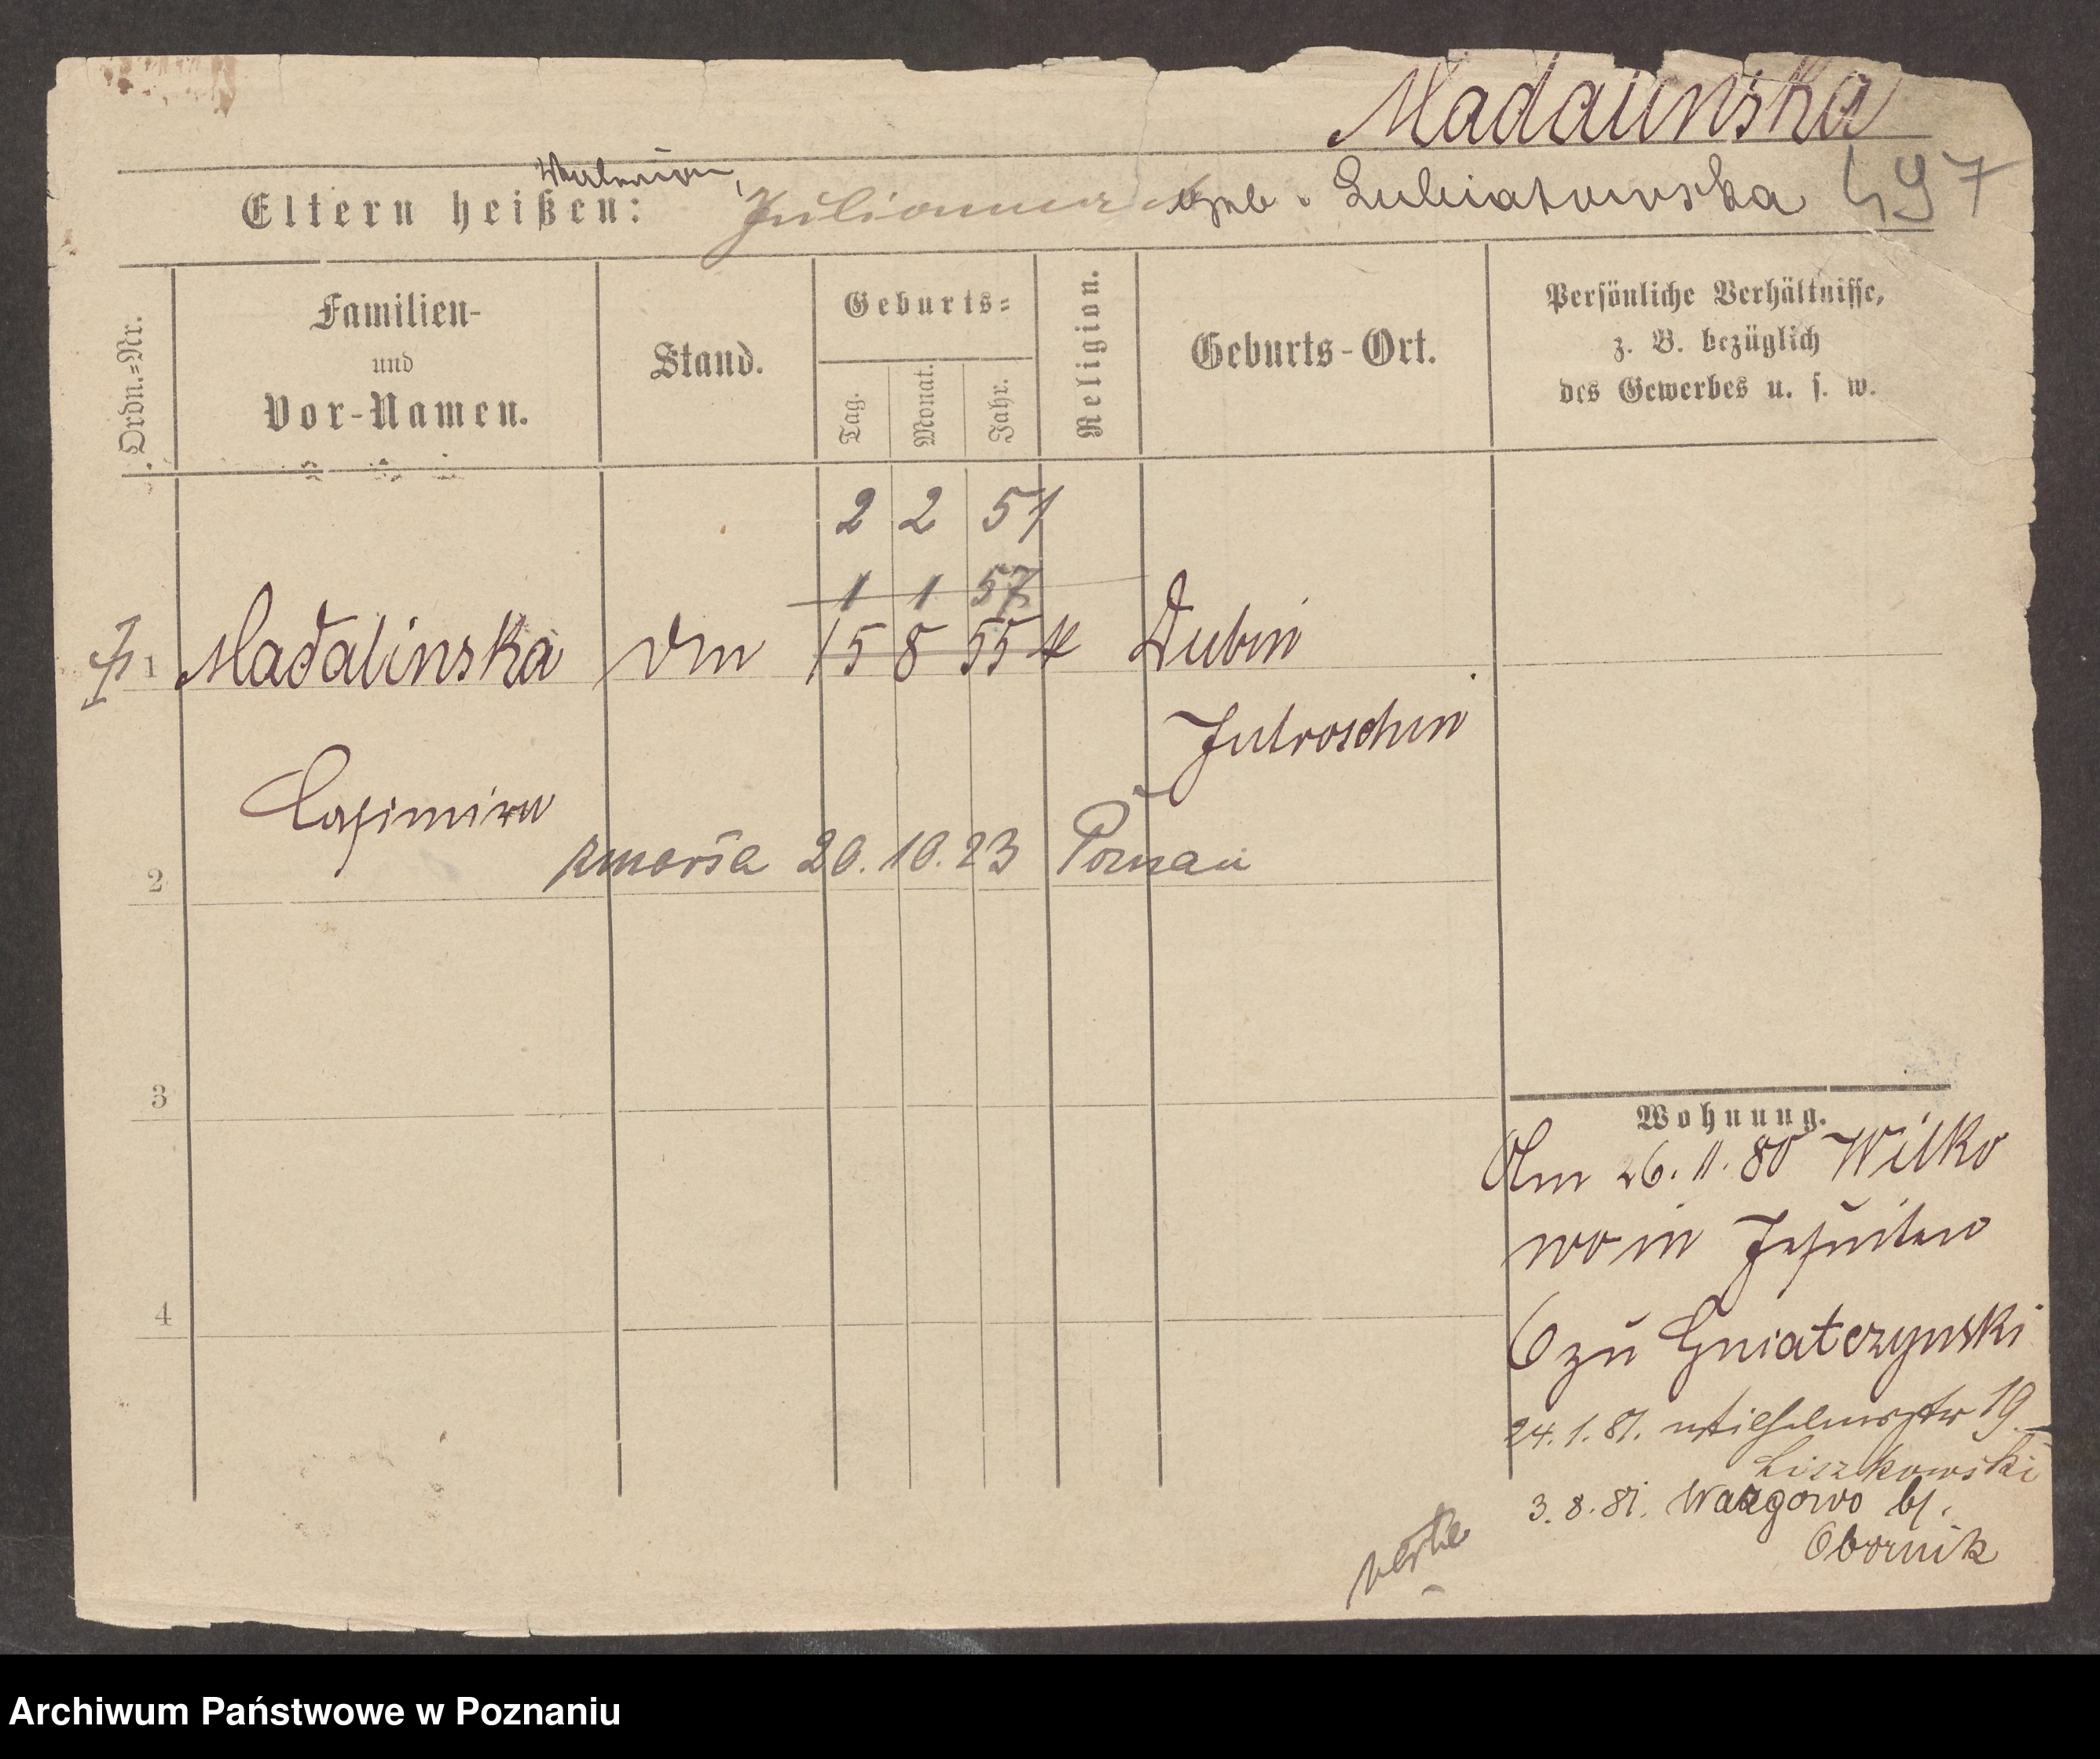 Madalinska
Eltern heißen: Julianna geb. Lubiatowska 497
Ordn.=Nr.
Familien-
und
Vor-Namen.
Stand.
Geburts=
Tag.
Monat.
Jahr.
Religion.
Geburts-Ort.
Persönliche Verhältnisse,
z. B. bezüglich
des Gewerbes u. s. w.
2 2 51
1 1 57
1 Madalinska 15 8 55 k Dubin
Jutroschin
Casimira
zmarła 20. 10. 23 Poznań
2
3
4
Wohnung.
Am 26. 11. 80 Wilko
wo in Jesuiten
6 zu Gniatczynski
24. 1. 81. Wilhelmstr 19
Liszkowski
3. 8. 81. Wargowo b/.
Obornik
verte
Archiwum Państwowe w Poznaniu